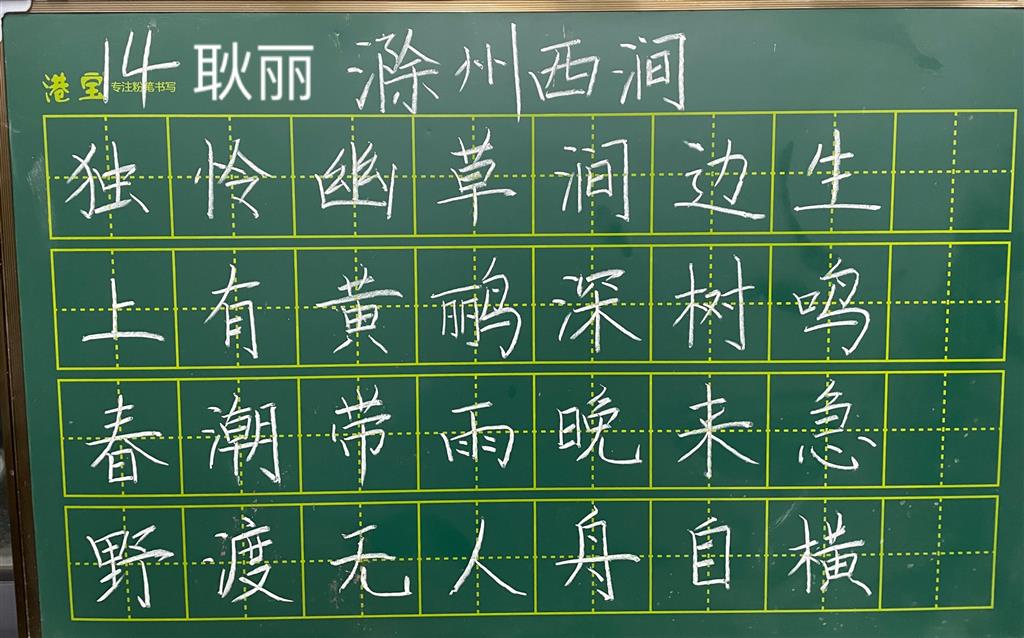 14 耿丽 滁州西涧
港宝 专注粉笔书写
独怜幽草涧边生
上有黄鹂深树鸣
春潮带雨晚来急
野渡无人舟自横